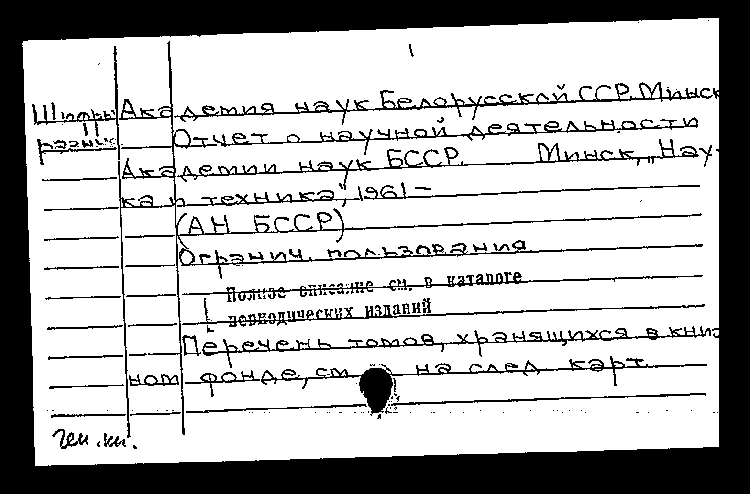 1
Шифры Академия наук Белорусской ССР. Минск
разные Отчет о научной деятельности
Академии наук БССР. Минск, „Нау-
ка и техника", 1961 –
(АН БССР)
Огранич. пользования
Полное описание см. в каталоге
периодических изданий
Перечень томов, хранящихся в книж
ном фонде, см на след карт.
Ген. кн.